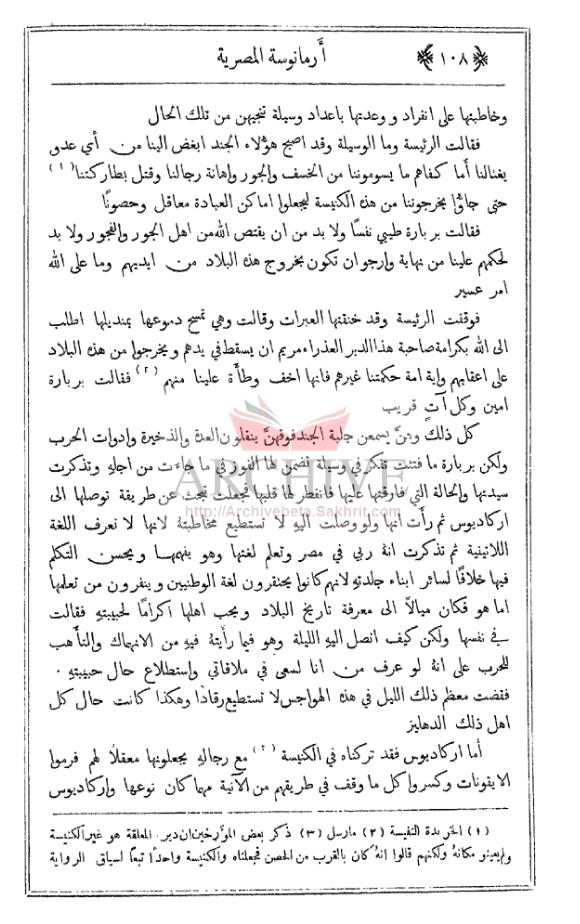 ﴿١٠٨﴾ أرمانوسة المصرية
وخاطبتها على انفراد ووعدتها باعداد وسيلة تنجيهن من تلك الحال
فقالت الرئيسة وما الوسيلة وقد اصبح هؤلاء الجند ابغض الينا من أي عدو
يغتالنا أما كفاهم ما يسوموننا من الخسف والجور واهانة رجالنا وقتل بطاركتنا (١)
حتى جاؤا يخرجوننا من هذه الكنيسة ليجعلوا اماكن العبادة معاقل وحصونًا
فقالت بربارة طيبي نفسًا ولا بد من ان يقتص الله من اهل الجور والفجور ولا بد
لحكمهم علينا من نهاية وارجو ان تكون بخروج هذه البلاد من ايديهم وما على الله
امر عسير
فوقفت الرئيسة وقد خنقتها العبرات وقالت وهي تمسح دموعها بمنديلها اطلب
الى الله بكرامة صاحبة هذا الدير العذراء مريم ان يسقط في يدهم ويخرجوا من هذه البلاد
على اعقابهم واية امة حكمتنا غيرهم فانها اخف وطأة علينا منهم (٢) فقالت بربارة
امين وكل آتٍ قريب
كل ذلك وهنَّ يسمعن جلبة الجند فوقهنَّ ينقلون العدة والذخيرة وادوات الحرب
ولكن بربارة ما فتئت تفكر في وسيلة تضمن لها الفوز في ما جاءت من اجله وتذكرت
سيدتها والحالة التي فارقتها عليها فانفطر لها قلبها فجعلت تبحث عن طريقة توصلها الى
اركاديوس ثم رأت انها ولو وصلت اليه لا تستطيع مخاطبتهُ لانها لا تعرف اللغة
اللاتينية ثم تذكرت انهُ ربي في مصر وتعلم لغتها وهو يفهمها ويحسن التكلم
فيها خلافًا لسائر ابناء جلدته لانهم كانوا يحتقرون لغة الوطنيين وينفرون من تعلمها
اما هو فكان ميالاً الى معرفة تاريخ البلاد ويحب اهلها اكرامًا لحبيبته فقالت
في نفسها ولكن كيف اتصل اليه الليلة وهو فيما رأيتهُ فيه من الانهماك والتأهب
للحرب على انهُ لو عرف من انا لسعى في ملاقاتي واستطلاع حال حبيبته .
فقضت معظم ذلك الليل في هذه الهواجس لا تستطيع رقادًا وهكذا كانت حال كل
اهل ذلك الدهليز
أما اركاديوس فقد تركناه في الكنيسة (٣) مع رجاله يجعلونها معقلاً لهم فرموا
الايقونات وكسروا كل ما وقف في طريقهم من الآنية مهما كان نوعها واركاديوس
(١) الخريدة النفيسة (٢) مارسل (٣) ذكر بعض المؤرخين ان دير المعلقة هو غير الكنيسة
ولم يعينو مكانهُ ولكنهم قالوا انهُ كان بالقرب من الحصن فجعلناه والكنيسة واحدًا تبعًا لسياق الرواية
ARCHIVE
http://Archivebeta.Sakhrit.com